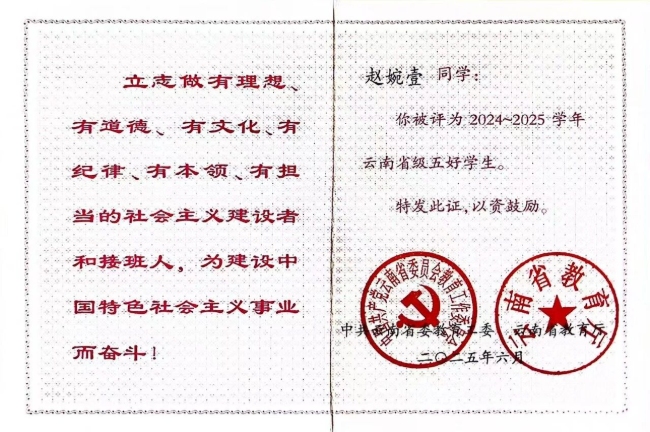 立志做有理想、
有道德、有文化、有
纪律、有本领、有担
当的社会主义建设者
和接班人，为建设中
国特色社会主义事业
而奋斗！
赵婉壹 同学：
你被评为2024~2025学年
云南省级五好学生。
特发此证，以资鼓励。
中国共产党云南省委员会教育工作委员会
云南省教育厅
中共云南省委教育工委 云南省教育厅
二〇二五年六月